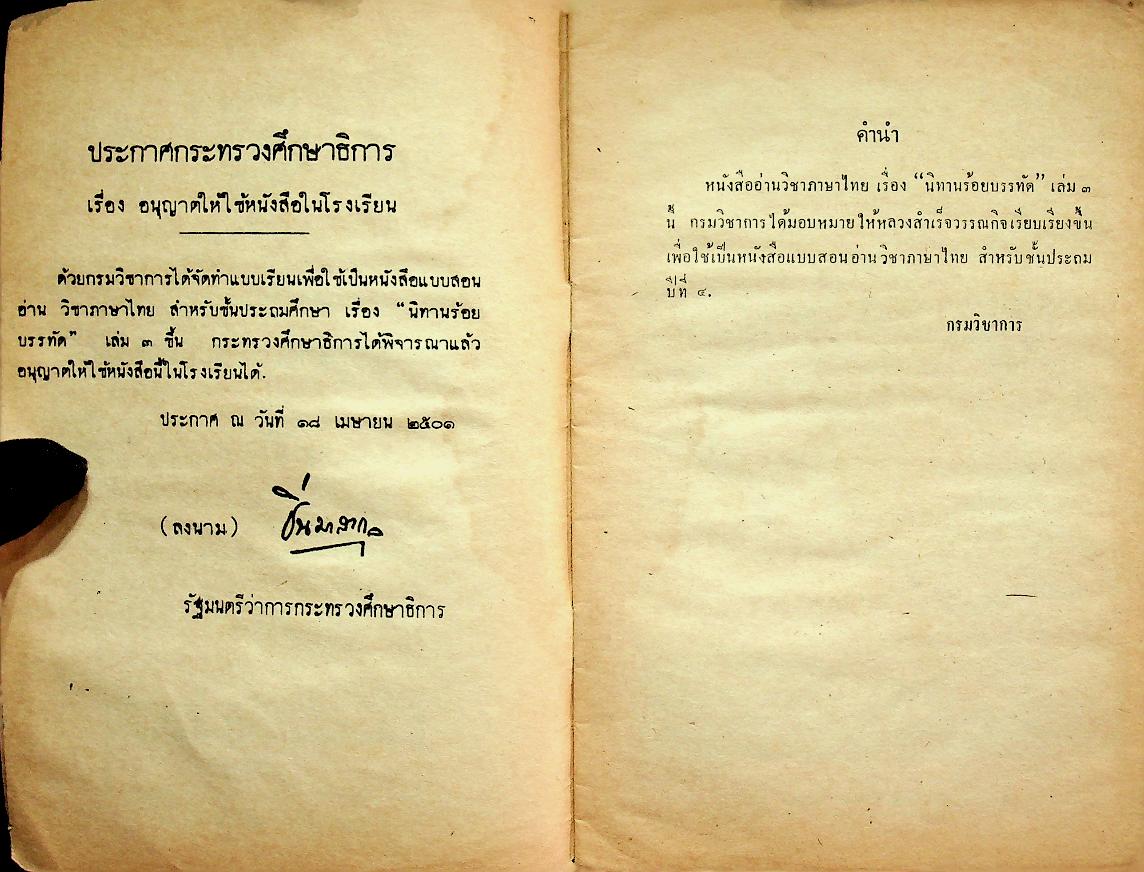 ประกาศกระทรวงศึกษาธิการ
เรื่อง อนุญาตให้ใช้หนังสือในโรงเรียน
ด้วยกรมวิชาการได้จัดทำแบบเรียนเพื่อใช้เป็นหนังสือแบบสอน
อ่าน วิชาภาษาไทย สำหรับชั้นประถมศึกษา เรื่อง “นิทานร้อย
บรรทัด” เล่ม ๓ ขึ้น กระทรวงศึกษาธิการได้พิจารณาแล้ว
อนุญาตให้ใช้หนังสือนี้ในโรงเรียนได้.
ประกาศ ณ วันที่ ๑๘ เมษายน ๒๕๐๑
(ลงนาม)
รัฐมนตรีว่าการกระทรวงศึกษาธิการ
คำนำ
หนังสืออ่านวิชาภาษาไทย เรื่อง “นิทานร้อยบรรทัด” เล่ม ๓
นี้ กรมวิชาการได้มอบหมายให้หลวงสำเร็จวรรณกิจเรียบเรียงขึ้น
เพื่อใช้เป็นหนังสือแบบสอนอ่านวิชาภาษาไทย สำหรับชั้นประถม
ปีที่ ๔.
กรมวิชาการ